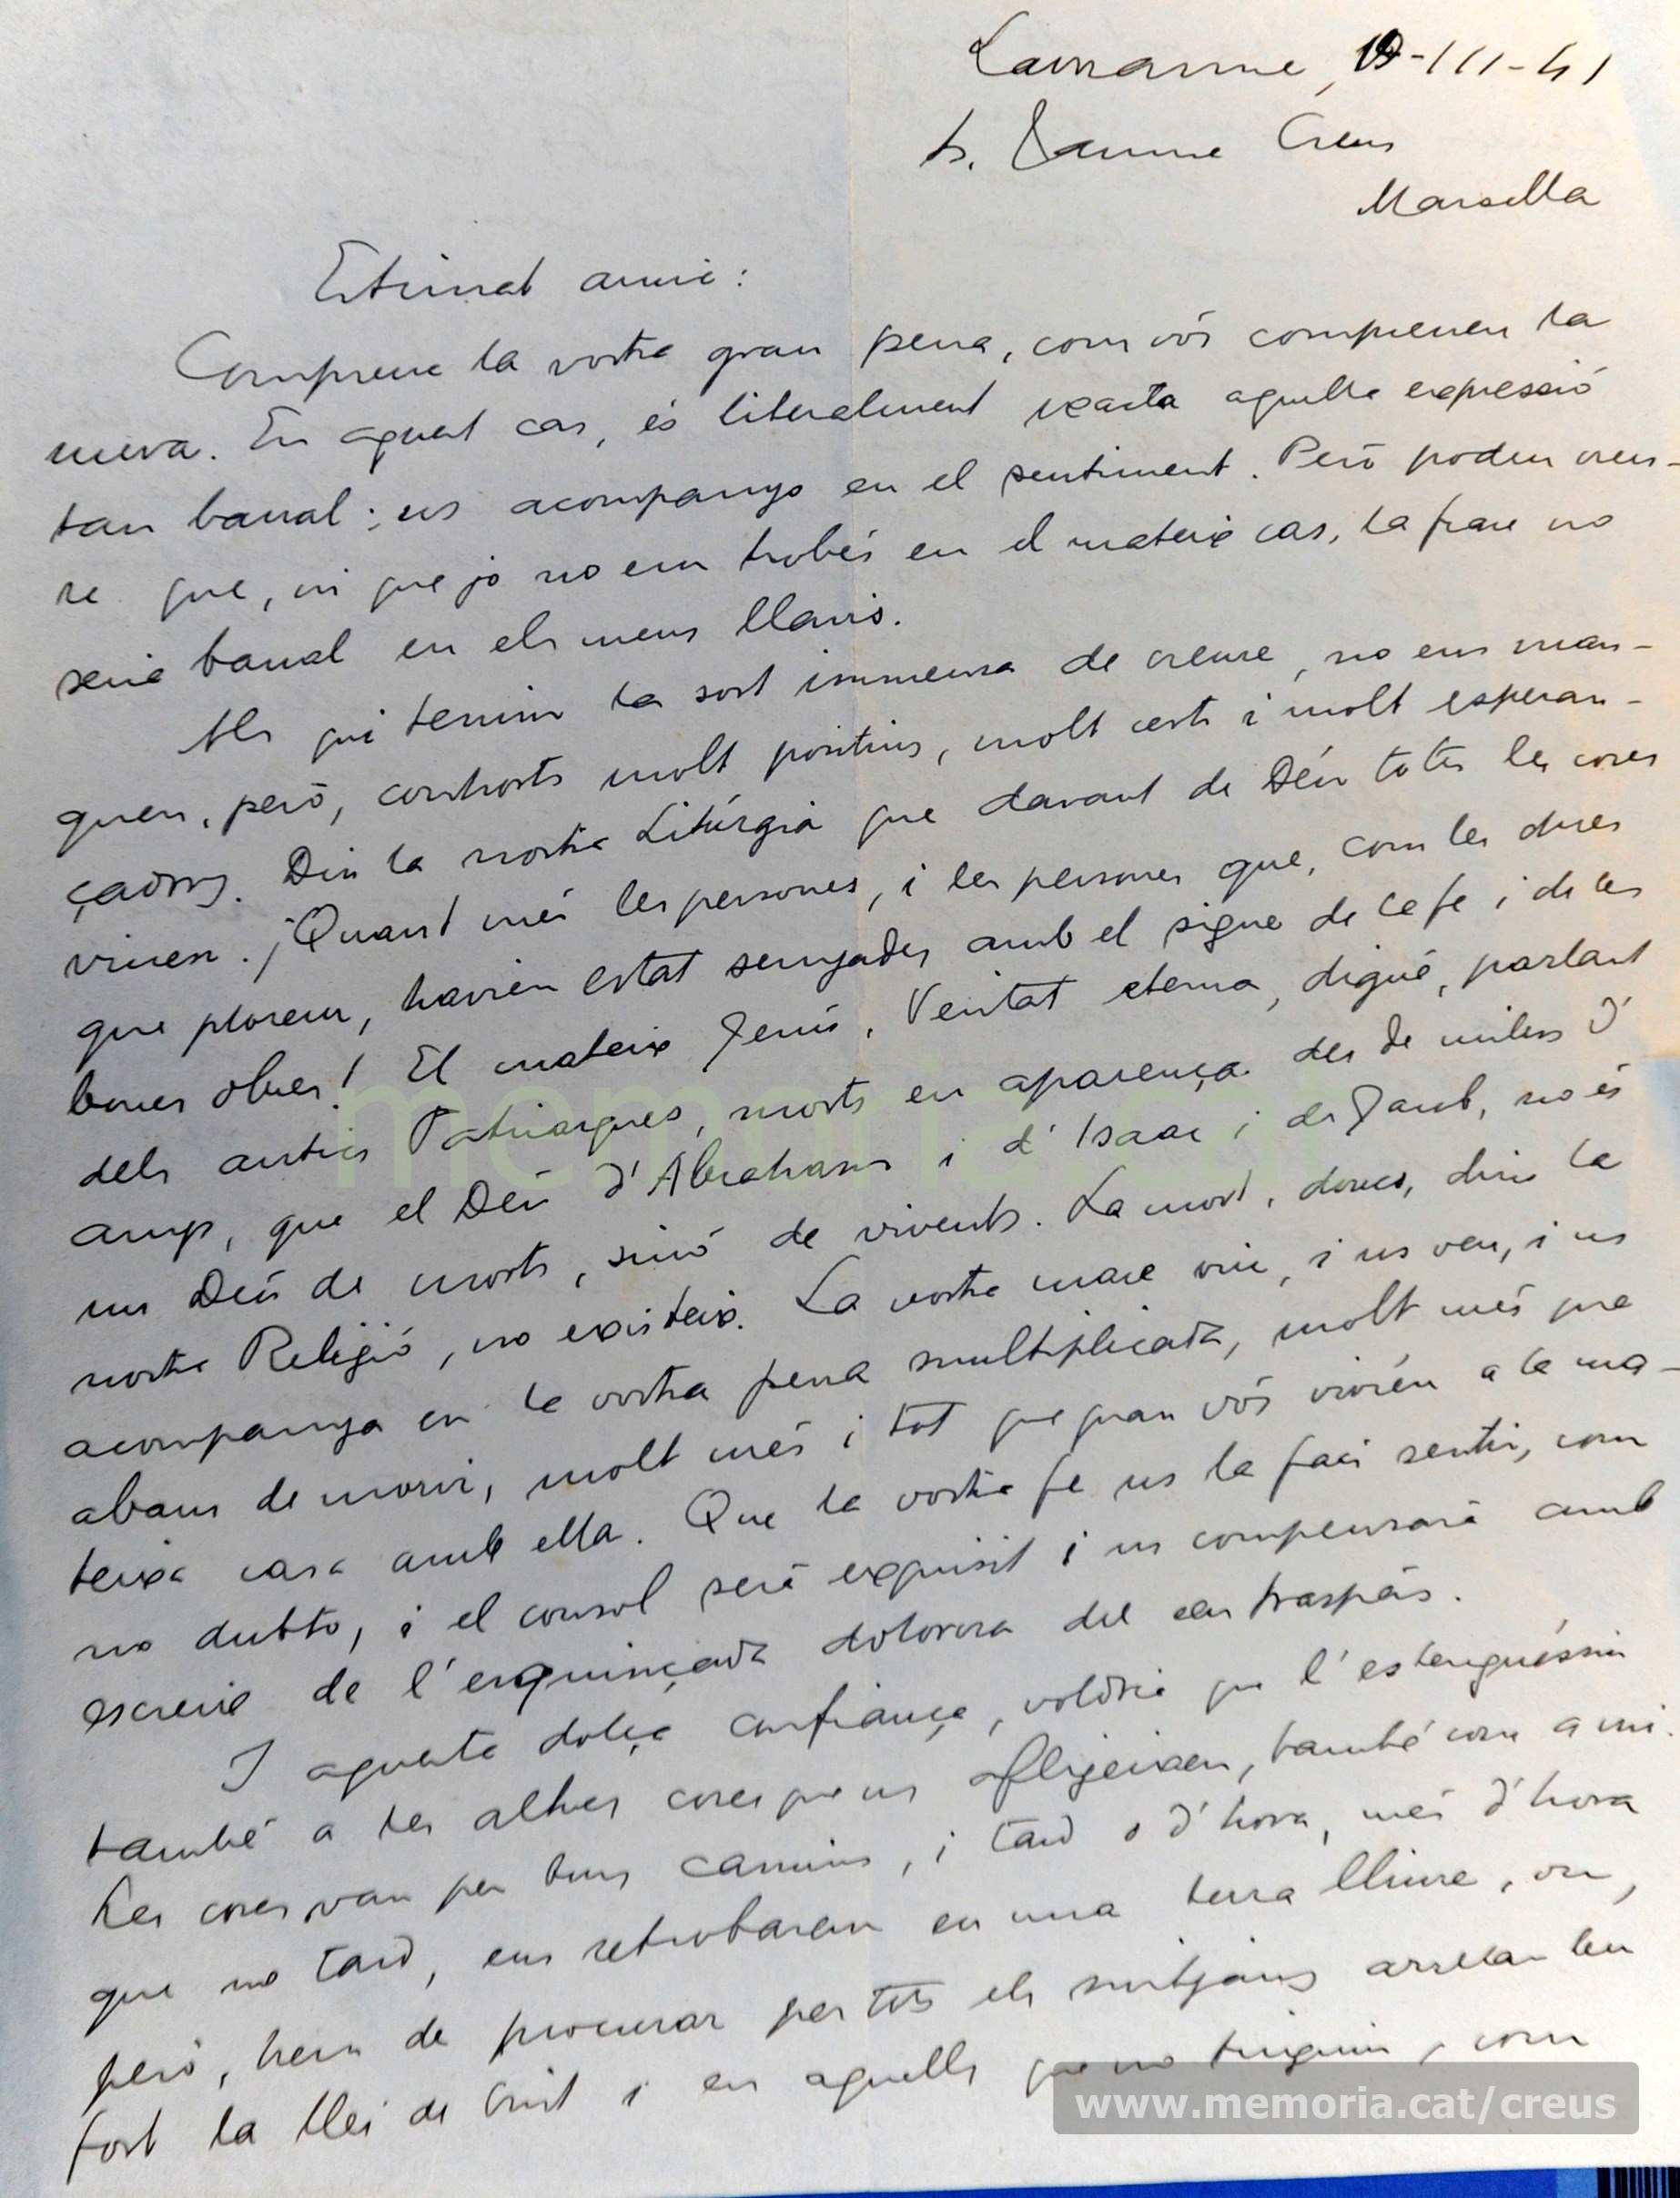 Lausanne, 19-III-41
Sr. Jaume Creus
Marsella
Estimat amic:
Comprenc la vostra gran pena, com vós compreneu la
meva. En aquest cas, és literalment exacta aquella expressió
tan banal: us acompanyo en el sentiment. Però podeu creu-
re que, ni que jo no em trobés en el mateix cas, la frase no
seria banal en els meus llavis.
Als qui tenim la sort immensa de creure, no ens man-
quen, però, conhorts molt positius, molt certs i molt esperan-
çadors. Diu la nostra Litúrgia que davant de Déu totes les coses
viuen. ¡Quant més les persones, i les persones que, com les dues
que plorem, havien estat senyades amb el signe de la fe i de les
bones obres! El mateix Jesús, Veritat eterna, digué, parlant
dels antics Patriarques, morts en aparença des de milers d'
anys, que el Déu d'Abraham i d'Isaac i de Jacob, no és
un Déu de morts, sinó de vivents. La mort, doncs, dins la
nostra Religió, no existeix. La vostra mare viu, i us veu, i us
acompanya en la vostra pena multiplicada, molt més que
abans de morir, molt més i tot que quan vós vivíeu a la ma-
teixa casa amb ella. Que la vostra fe us la faci sentir, com
no dubto, i el consol serà exquisit i us compensarà amb
escreix de l'esquinçada dolorosa del seu traspàs.
I aquesta dolça confiança, voldria que l'estenguéssiu
també a les altres coses que us afligeixen, també com a mi.
Les coses van per bons camins, i tard o d'hora, més d'hora
que no tard, ens retrobarem en una terra lliure, on,
però, hem de procurar per tots els mitjans arrelar ben
fort la llei de Crist i en aquells que no tinguin, com
memoria.cat
www.memoria.cat/creus